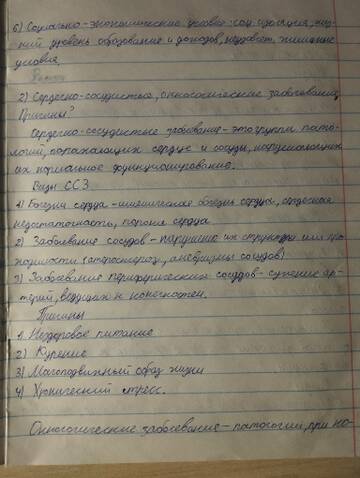 6) Социально-экономические условия - соц. изоляция, низ-
кий уровень образования и доходов, неудовлет. жилищные
условия.
2) Сердечно-сосудистые, онкологические заболевания.
Причины?
Сердечно-сосудистые заболевание - это группы пато-
логий, поражающих сердце и сосуды, нарушающих
их нормальное функционирование.
Виды ССЗ
1) Болезни сердца - ишемическая болезнь сердца, сердечная
недостаточность, пороки сердца
2) Заболевание сосудов - нарушение их структуры или про-
ходимости (атеросклероз, аневризмы сосудов)
3) Заболевания периферических сосудов - сужение ар-
терий, ведущих к конечностям.
Причины
1. Нездоровое питание
2) Курение
3) Малоподвижный образ жизни
4) Хронический стресс.
Онкологические заболевание - патологии, при ко-